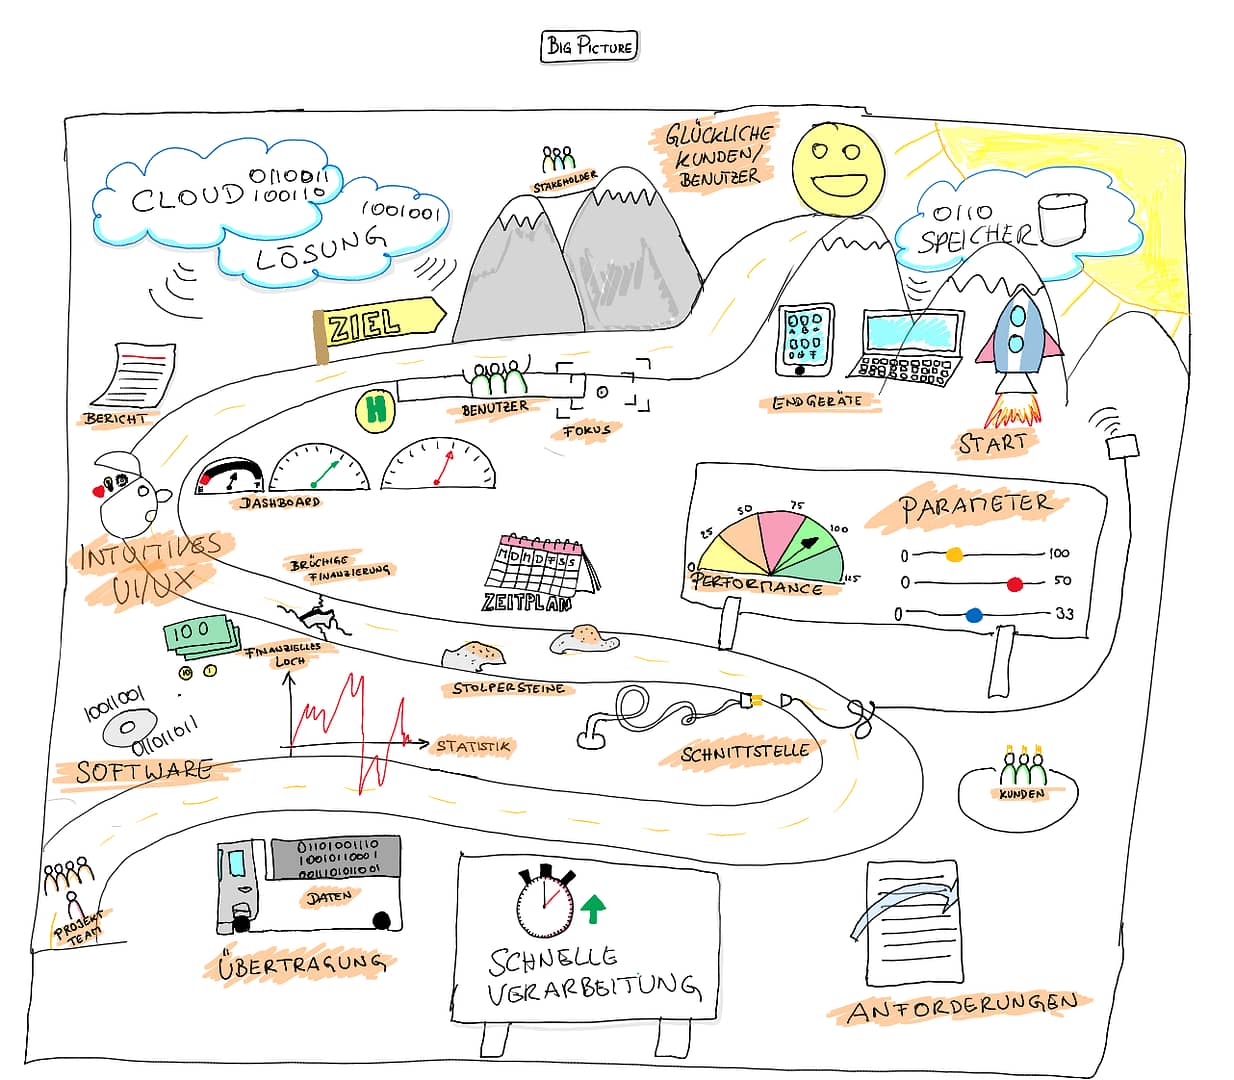 BIG PICTURE
GLÜCKLICHE
KUNDEN/
BENUTZER
STAKEHOLDER
CLOUD
0110011
100110
1001001
LÖSUNG
0110
SPEICHER
ZIEL
BERICHT
H
BENUTZER
FOKUS
ENDGERÄTE
START
E F
DASHBOARD
INTUITIVES
UI/UX
BRÜCHIGE
FINANZIERUNG
M D M D F S S
ZEITPLAN
0 25 50 75 100 125
PERFORMANCE
PARAMETER
0 100
0 50
0 33
100
10 1
FINANZIELLES
LOCH
STOLPERSTEINE
10011001
011011011
SOFTWARE
STATISTIK
SCHNITTSTELLE
KUNDEN
PROJEKT
TEAM
01101001110
10010110001
001110101001
DATEN
ÜBERTRAGUNG
SCHNELLE
VERARBEITUNG
ANFORDERUNGEN